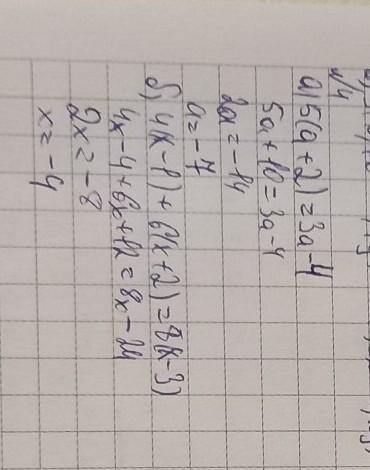 №4
а) 5(a+2)=3a-4
5a+10=3a-4
2a=-14
a=-7
б) 4(x-1)+6(x+2)=8(x-3)
4x-4+6x+12=8x-24
2x=-8
x=-4